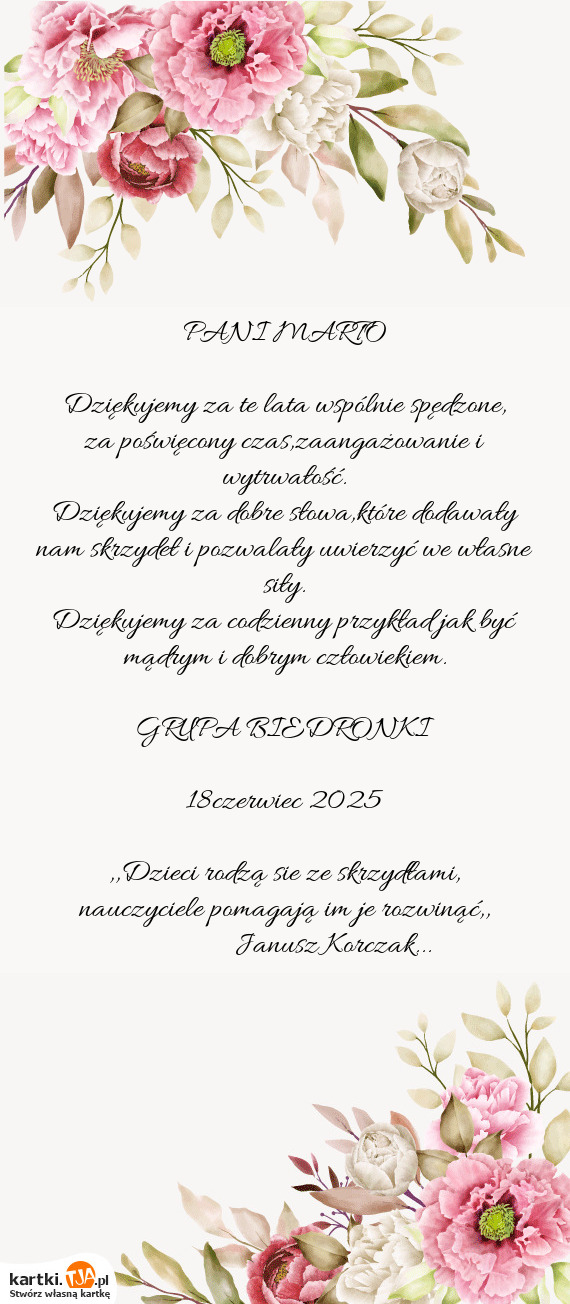 PANI MARTO
Dziękujemy za te lata wspólnie spędzone,
za poświęcony czas,zaangażowanie i
wytrwałość.
Dziękujemy za dobre słowa,które dodawały
nam skrzydeł i pozwalały uwierzyć we własne
siły.
Dziękujemy za codzienny przykład jak być
mądrym i dobrym człowiekiem.
GRUPA BIEDRONKI
18czerwiec 2025
,,Dzieci rodzą sie ze skrzydłami,
nauczyciele pomagają im je rozwinąć,,
Janusz Korczak...
kartki.TJA.pl
Stwórz własną kartkę